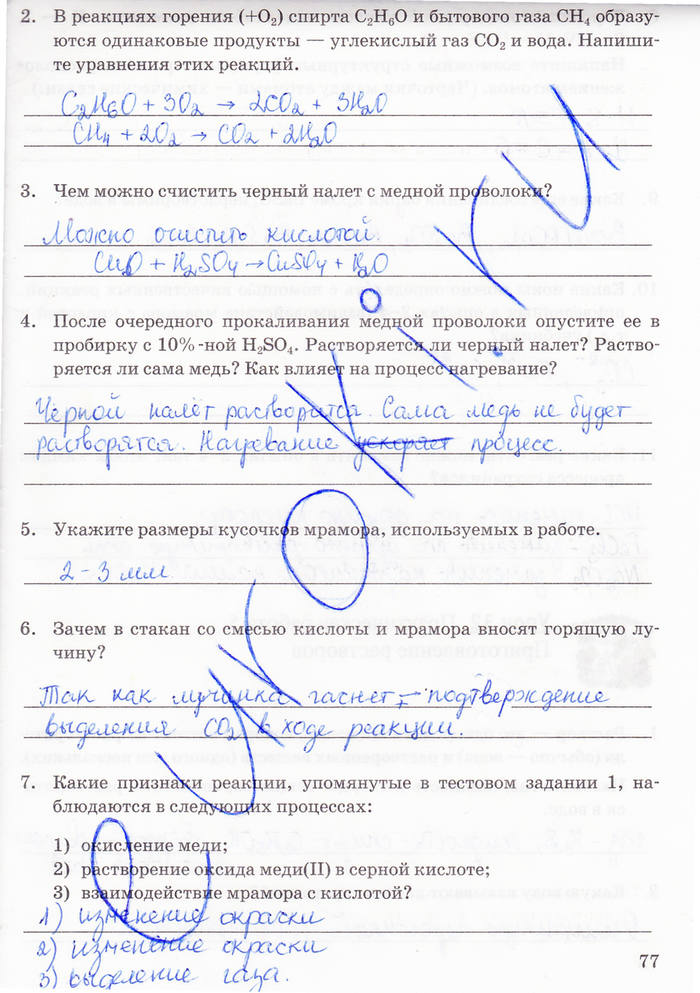 2. В реакциях горения (+O₂) спирта C₂H₆O и бытового газа CH₄ образу-
ются одинаковые продукты — углекислый газ CO₂ и вода. Напиши-
те уравнения этих реакций.
C₂H₆O + 3O₂ → 2CO₂ + 3H₂O
CH₄ + 2O₂ → CO₂ + 2H₂O
3. Чем можно счистить черный налет с медной проволоки?
Можно очистить кислотой.
CuO + H₂SO₄ → CuSO₄ + H₂O
4. После очередного прокаливания медной проволоки опустите ее в
пробирку с 10%-ной H₂SO₄. Растворяется ли черный налет? Раство-
ряется ли сама медь? Как влияет на процесс нагревание?
Чёрной налёт растворится. Сама медь не будет
растворятся. Нагревание ускоряет процесс.
5. Укажите размеры кусочков мрамора, используемых в работе.
2-3 мм
6. Зачем в стакан со смесью кислоты и мрамора вносят горящую лу-
чину?
Так как лучинка гаснет – подтверждение
выделения CO₂ в ходе реакции.
7. Какие признаки реакции, упомянутые в тестовом задании 1, на-
блюдаются в следующих процессах:
1) окисление меди;
2) растворение оксида меди(II) в серной кислоте;
3) взаимодействие мрамора с кислотой?
1) изменение окраски
2) изменение окраски
3) выделение газа.
77